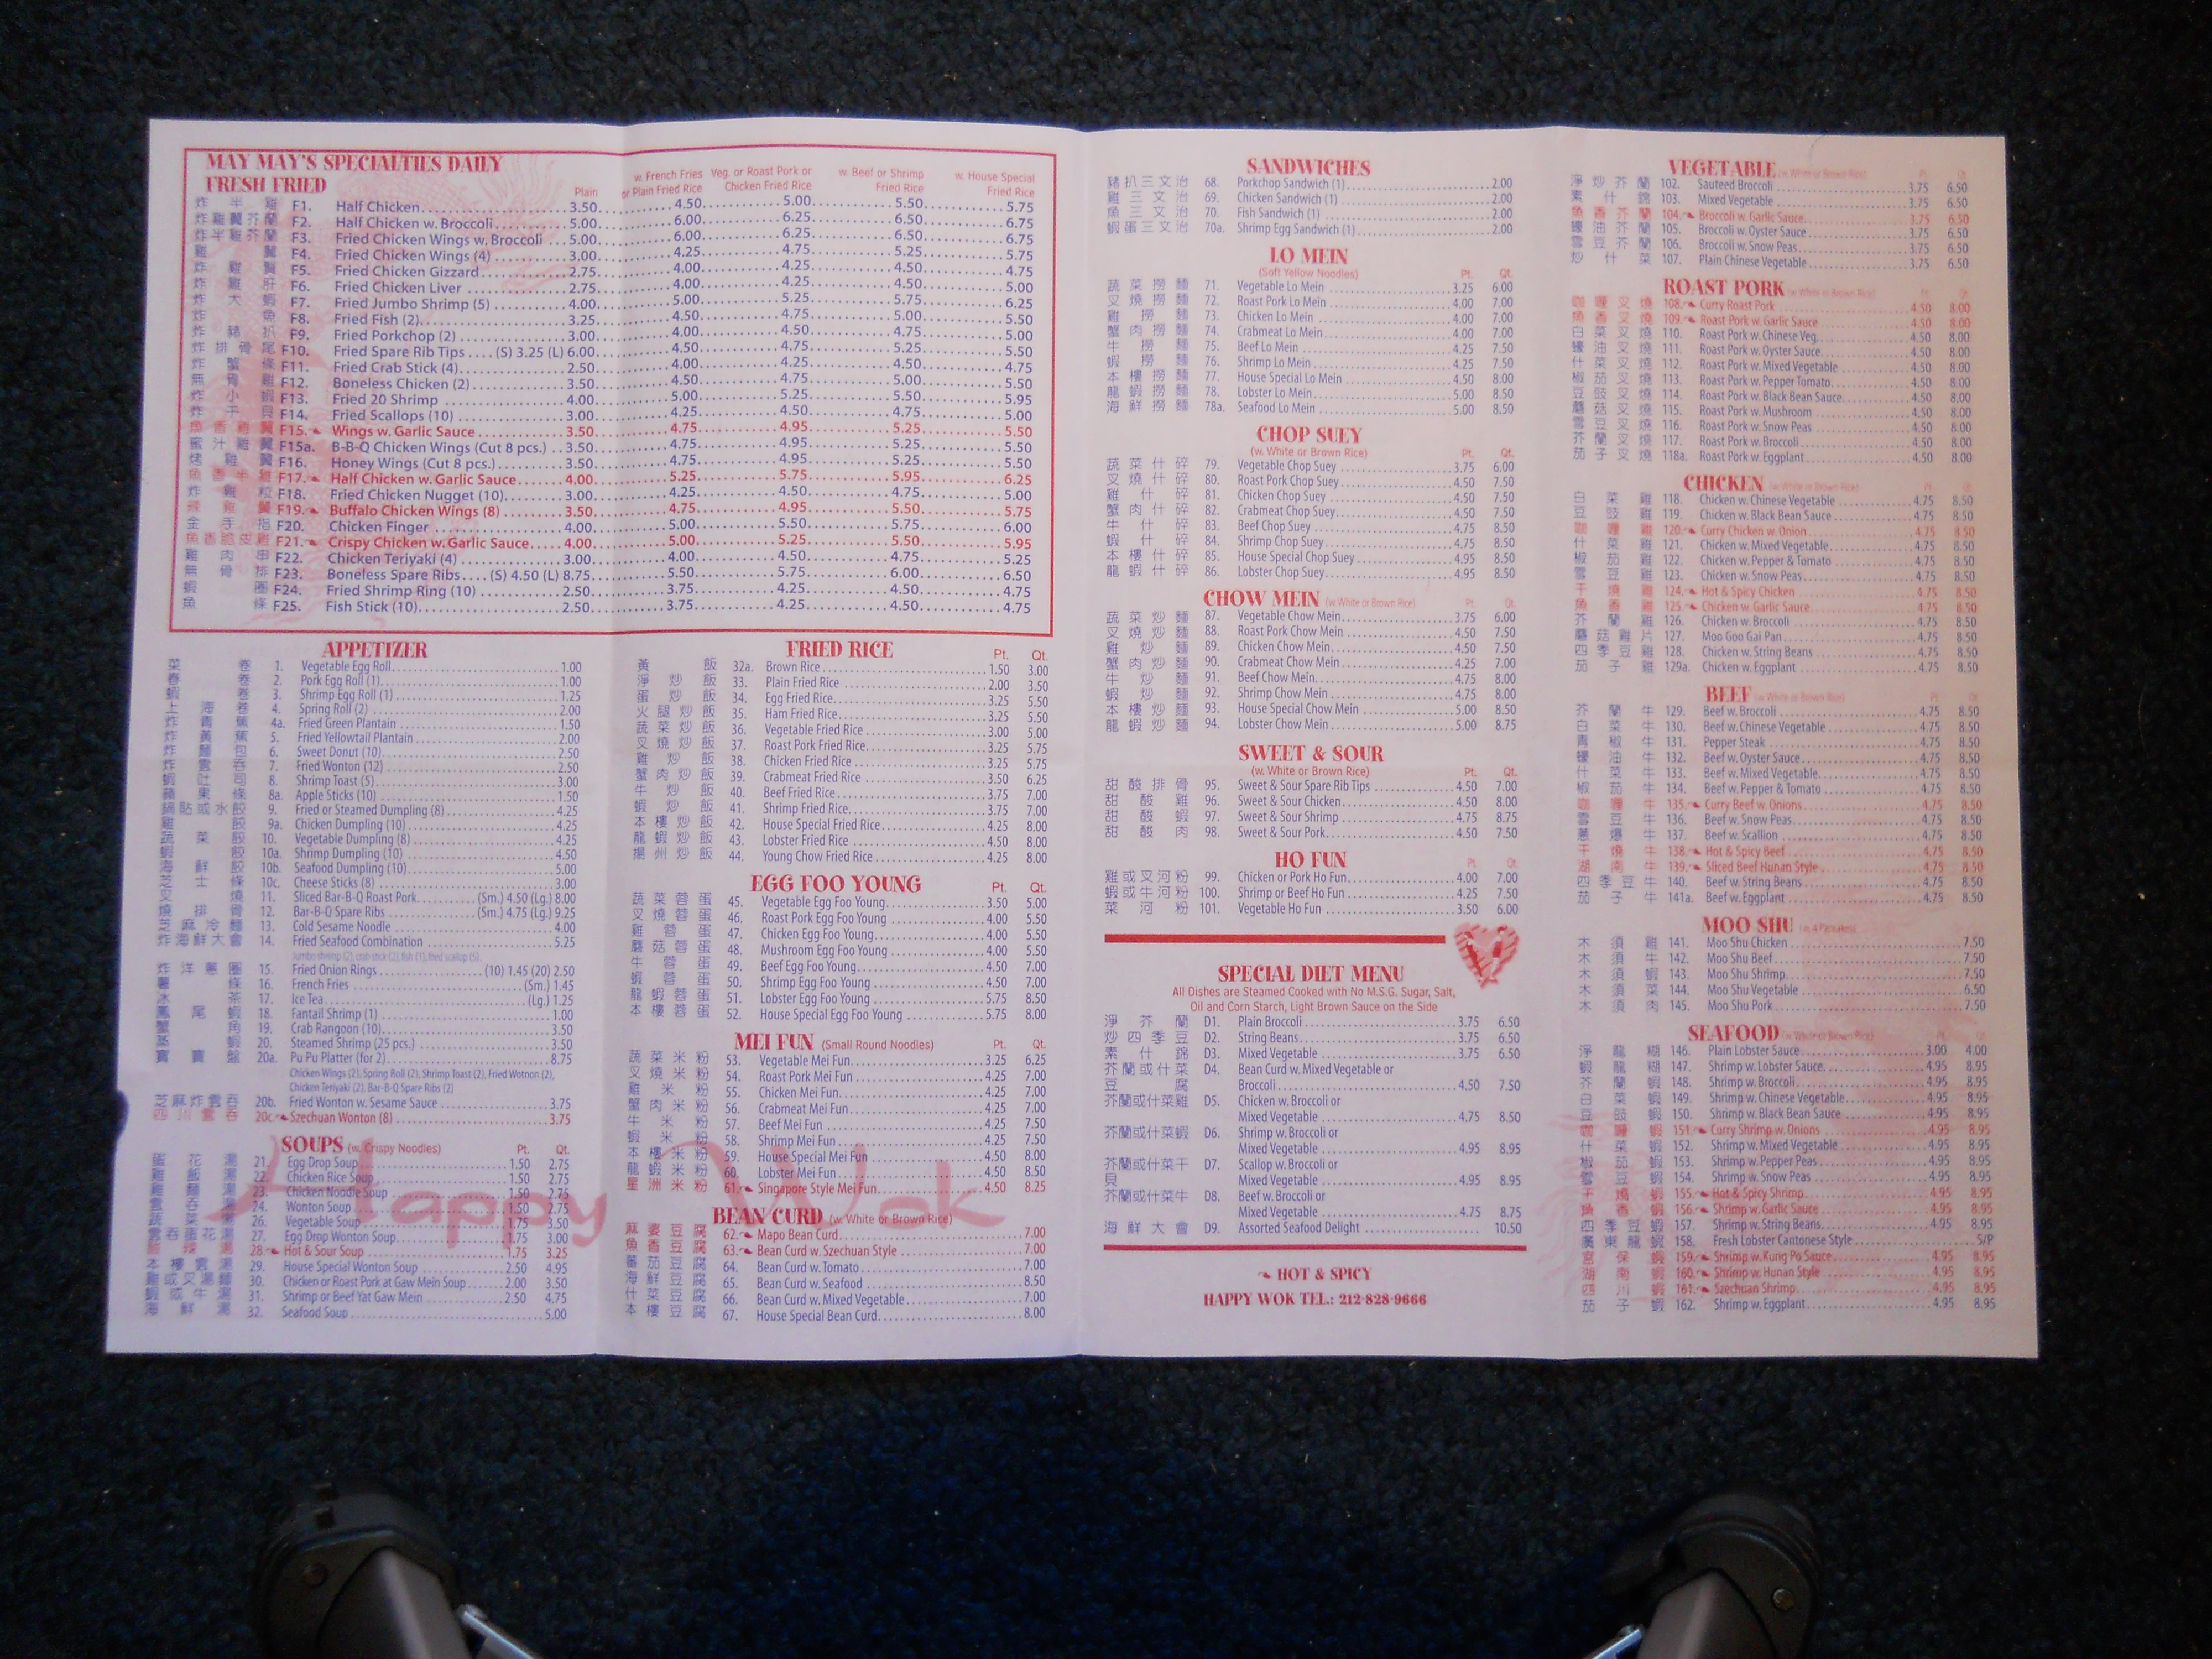 MAY MAY'S SPECIALTIES DAILY
FRESH FRIED
Plain w. French Fries or Plain Fried Rice Veg. or Roast Pork or Chicken Fried Rice w. Beef or Shrimp Fried Rice w. House Special Fried Rice
炸半雞 F1. Half Chicken 3.50 4.50 5.00 5.50 5.75
炸雞翼芥蘭 F2. Half Chicken w. Broccoli 5.00 6.00 6.25 6.50 6.75
炸半雞芥蘭 F3. Fried Chicken Wings w. Broccoli 5.00 6.00 6.25 6.50 6.75
雞翼 F4. Fried Chicken Wings (4) 3.00 4.25 4.75 5.25 5.75
炸雞腎 F5. Fried Chicken Gizzard 2.75 4.00 4.25 4.50 4.75
炸雞肝 F6. Fried Chicken Liver 2.75 4.00 4.25 4.50 5.00
炸大蝦 F7. Fried Jumbo Shrimp (5) 4.00 5.00 5.25 5.75 6.25
炸魚 F8. Fried Fish (2) 3.25 4.50 4.75 5.00 5.50
炸豬扒 F9. Fried Porkchop (2) 3.00 4.00 4.50 4.75 5.00
炸排骨尾 F10. Fried Spare Rib Tips (S) 3.25 (L) 6.00 4.50 4.75 5.25 5.50
炸蟹條 F11. Fried Crab Stick (4) 2.50 4.00 4.25 4.50 4.75
無骨雞 F12. Boneless Chicken (2) 3.50 4.50 4.75 5.00 5.50
炸小蝦 F13. Fried 20 Shrimp 4.00 5.00 5.25 5.50 5.95
炸干貝 F14. Fried Scallops (10) 3.00 4.25 4.50 4.75 5.00
魚香雞翼 F15. Wings w. Garlic Sauce 3.50 4.75 4.95 5.25 5.50
蜜汁雞翼 F15a. B-B-Q Chicken Wings (Cut 8 pcs.) 3.50 4.75 4.95 5.25 5.50
烤雞翼 F16. Honey Wings (Cut 8 pcs.) 3.50 4.75 4.95 5.25 5.50
魚香半雞 F17. Half Chicken w. Garlic Sauce 4.00 5.25 5.75 5.95 6.25
炸雞粒 F18. Fried Chicken Nugget (10) 3.00 4.25 4.50 4.75 5.00
辣雞翼 F19. Buffalo Chicken Wings (8) 3.50 4.75 4.95 5.50 5.75
金手指 F20. Chicken Finger 4.00 5.00 5.50 5.75 6.00
魚香脆皮雞 F21. Crispy Chicken w. Garlic Sauce 4.00 5.00 5.25 5.50 5.95
雞肉串 F22. Chicken Teriyaki (4) 3.00 4.00 4.50 4.75 5.25
無骨排 F23. Boneless Spare Ribs (S) 4.50 (L) 8.75 5.50 5.75 6.00 6.50
蝦圈 F24. Fried Shrimp Ring (10) 2.50 3.75 4.25 4.50 4.75
魚條 F25. Fish Stick (10) 2.50 3.75 4.25 4.50 4.75
APPETIZER
菜卷 1. Vegetable Egg Roll 1.00
春卷 2. Pork Egg Roll (1) 1.00
蝦卷 3. Shrimp Egg Roll (1) 1.25
上海卷 4. Spring Roll (2) 2.00
炸青蕉 4a. Fried Green Plantain 1.50
炸黃蕉 5. Fried Yellowtail Plantain 2.00
炸麵包 6. Sweet Donut (10) 2.50
炸雲吞 7. Fried Wonton (12) 2.50
蝦吐司 8. Shrimp Toast (5) 3.00
蘋果條 8a. Apple Sticks (10) 1.50
鍋貼或水餃 9. Fried or Steamed Dumpling (8) 4.25
雞餃 9a. Chicken Dumpling (10) 4.25
蔬菜餃 10. Vegetable Dumpling (8) 4.25
蝦餃 10a. Shrimp Dumpling (10) 4.50
海鮮餃 10b. Seafood Dumpling (10) 5.00
芝士條 10c. Cheese Sticks (8) 3.00
叉燒 11. Sliced Bar-B-Q Roast Pork (Sm.) 4.50 (Lg.) 8.00
燒排骨 12. Bar-B-Q Spare Ribs (Sm.) 4.75 (Lg.) 9.25
芝麻冷麵 13. Cold Sesame Noodle 4.00
炸海鮮大會 14. Fried Seafood Combination 5.25
Jumbo shrimp (2), crab stick (2), fish (1), fried scallop (5).
炸洋蔥圈 15. Fried Onion Rings (10) 1.45 (20) 2.50
薯條 16. French Fries (Sm.) 1.45
冰茶 17. Ice Tea (Lg.) 1.25
鳳尾蝦 18. Fantail Shrimp (1) 1.00
蟹角 19. Crab Rangoon (10) 3.50
蒸蝦 20. Steamed Shrimp (25 pcs.) 3.50
寶寶盤 20a. Pu Pu Platter (for 2) 8.75
Chicken Wings (2), Spring Roll (2), Shrimp Toast (2), Fried Wotnon (2),
Chicken Teriyaki (2), Bar-B-Q Spare Ribs (2)
芝麻炸雲吞 20b. Fried Wonton w. Sesame Sauce 3.75
四川雲吞 20c. Szechuan Wonton (8) 3.75
SOUPS (w. Crispy Noodles) Pt. Qt.
蛋花湯 21. Egg Drop Soup 1.50 2.75
雞飯湯 22. Chicken Rice Soup 1.50 2.75
雞麵湯 23. Chicken Noodle Soup 1.50 2.75
雲吞湯 24. Wonton Soup 1.50 2.75
蔬菜湯 26. Vegetable Soup 1.75 3.50
雲吞蛋花湯 27. Egg Drop Wonton Soup 1.75 3.00
酸辣湯 28. Hot & Sour Soup 1.75 3.25
本樓雲湯 29. House Special Wonton Soup 2.50 4.95
雞或叉湯麵 30. Chicken or Roast Pork at Gaw Mein Soup 2.00 3.50
蝦或牛湯 31. Shrimp or Beef Yat Gaw Mein 2.50 4.75
海鮮湯 32. Seafood Soup 5.00
FRIED RICE Pt. Qt.
黃飯 32a. Brown Rice 1.50 3.00
淨炒飯 33. Plain Fried Rice 2.00 3.50
蛋炒飯 34. Egg Fried Rice 3.25 5.50
火腿炒飯 35. Ham Fried Rice 3.25 5.50
蔬菜炒飯 36. Vegetable Fried Rice 3.00 5.00
叉燒炒飯 37. Roast Pork Fried Rice 3.25 5.75
雞炒飯 38. Chicken Fried Rice 3.25 5.75
蟹肉炒飯 39. Crabmeat Fried Rice 3.50 6.25
牛炒飯 40. Beef Fried Rice 3.75 7.00
蝦炒飯 41. Shrimp Fried Rice 3.75 7.00
本樓炒飯 42. House Special Fried Rice 4.25 8.00
龍蝦炒飯 43. Lobster Fried Rice 4.50 8.00
揚州炒飯 44. Young Chow Fried Rice 4.25 8.00
EGG FOO YOUNG Pt. Qt.
蔬菜蓉蛋 45. Vegetable Egg Foo Young 3.50 5.00
叉燒蓉蛋 46. Roast Pork Egg Foo Young 4.00 5.50
雞蓉蛋 47. Chicken Egg Foo Young 4.00 5.50
蘑菇蓉蛋 48. Mushroom Egg Foo Young 4.00 5.50
牛蓉蛋 49. Beef Egg Foo Young 4.50 7.00
蝦蓉蛋 50. Shrimp Egg Foo Young 4.50 7.00
龍蝦蓉蛋 51. Lobster Egg Foo Young 5.75 8.50
本樓蓉蛋 52. House Special Egg Foo Young 5.75 8.00
MEI FUN (Small Round Noodles) Pt. Qt.
蔬菜米粉 53. Vegetable Mei Fun 3.25 6.25
叉燒米粉 54. Roast Pork Mei Fun 4.25 7.00
雞米粉 55. Chicken Mei Fun 4.25 7.00
蟹肉米粉 56. Crabmeat Mei Fun 4.25 7.00
牛米粉 57. Beef Mei Fun 4.25 7.50
蝦米粉 58. Shrimp Mei Fun 4.25 7.50
本樓米粉 59. House Special Mei Fun 4.50 8.00
龍蝦米粉 60. Lobster Mei Fun 4.50 8.50
星洲米粉 61. Singapore Style Mei Fun 4.50 8.25
Happy Wok
BEAN CURD (w. White or Brown Rice)
麻婆豆腐 62. Mapo Bean Curd 7.00
魚香豆腐 63. Bean Curd w. Szechuan Style 7.00
蕃茄豆腐 64. Bean Curd w. Tomato 7.00
海鮮豆腐 65. Bean Curd w. Seafood 8.50
什菜豆腐 66. Bean Curd w. Mixed Vegetable 7.00
本樓豆腐 67. House Special Bean Curd 8.00
SANDWICHES
豬扒三文治 68. Porkchop Sandwich (1) 2.00
雞三文治 69. Chicken Sandwich (1) 2.00
魚三文治 70. Fish Sandwich (1) 2.00
蝦蛋三文治 70a. Shrimp Egg Sandwich (1) 2.00
LO MEIN
(Soft Yellow Noodles) Pt. Qt.
蔬菜撈麵 71. Vegetable Lo Mein 3.25 6.00
叉燒撈麵 72. Roast Pork Lo Mein 4.00 7.00
雞撈麵 73. Chicken Lo Mein 4.00 7.00
蟹肉撈麵 74. Crabmeat Lo Mein 4.00 7.00
牛撈麵 75. Beef Lo Mein 4.25 7.50
蝦撈麵 76. Shrimp Lo Mein 4.25 7.50
本樓撈麵 77. House Special Lo Mein 4.50 8.00
龍蝦撈麵 78. Lobster Lo Mein 5.00 8.50
海鮮撈麵 78a. Seafood Lo Mein 5.00 8.50
CHOP SUEY
(w. White or Brown Rice) Pt. Qt.
蔬菜什碎 79. Vegetable Chop Suey 3.75 6.00
叉燒什碎 80. Roast Pork Chop Suey 4.50 7.50
雞什碎 81. Chicken Chop Suey 4.50 7.50
蟹肉什碎 82. Crabmeat Chop Suey 4.50 7.50
牛什碎 83. Beef Chop Suey 4.75 8.50
蝦什碎 84. Shrimp Chop Suey 4.75 8.50
本樓什碎 85. House Special Chop Suey 4.95 8.50
龍蝦什碎 86. Lobster Chop Suey 4.95 8.50
CHOW MEIN (w. White or Brown Rice) Pt. Qt.
蔬菜炒麵 87. Vegetable Chow Mein 3.75 6.00
叉燒炒麵 88. Roast Pork Chow Mein 4.50 7.50
雞炒麵 89. Chicken Chow Mein 4.50 7.50
蟹肉炒麵 90. Crabmeat Chow Mein 4.25 7.00
牛炒麵 91. Beef Chow Mein 4.75 8.00
蝦炒麵 92. Shrimp Chow Mein 4.75 8.00
本樓炒麵 93. House Special Chow Mein 5.00 8.50
龍蝦炒麵 94. Lobster Chow Mein 5.00 8.75
SWEET & SOUR
(w. White or Brown Rice) Pt. Qt.
甜酸排骨 95. Sweet & Sour Spare Rib Tips 4.50 7.00
甜酸雞 96. Sweet & Sour Chicken 4.50 8.00
甜酸蝦 97. Sweet & Sour Shrimp 4.75 8.75
甜酸肉 98. Sweet & Sour Pork 4.50 7.50
HO FUN Pt. Qt.
雞或叉河粉 99. Chicken or Pork Ho Fun 4.00 7.00
蝦或牛河粉 100. Shrimp or Beef Ho Fun 4.25 7.50
菜河粉 101. Vegetable Ho Fun 3.50 6.00
SPECIAL DIET MENU
All Dishes are Steamed Cooked with No M.S.G. Sugar, Salt,
Oil and Corn Starch, Light Brown Sauce on the Side
淨芥蘭 D1. Plain Broccoli 3.75 6.50
炒四季豆 D2. String Beans 3.75 6.50
素什錦 D3. Mixed Vegetable 3.75 6.50
芥蘭或什菜 D4. Bean Curd w. Mixed Vegetable or
豆腐 Broccoli 4.50 7.50
芥蘭或什菜雞 D5. Chicken w. Broccoli or
Mixed Vegetable 4.75 8.50
芥蘭或什菜蝦 D6. Shrimp w. Broccoli or
Mixed Vegetable 4.95 8.95
芥蘭或什菜干 D7. Scallop w. Broccoli or
貝 Mixed Vegetable 4.95 8.95
芥蘭或什菜牛 D8. Beef w. Broccoli or
Mixed Vegetable 4.75 8.75
海鮮大會 D9. Assorted Seafood Delight 10.50
HOT & SPICY
HAPPY WOK TEL.: 212-828-9666
VEGETABLE (w. White or Brown Rice) Pt. Qt.
淨炒芥蘭 102. Sauteed Broccoli 3.75 6.50
素什錦 103. Mixed Vegetable 3.75 6.50
魚香芥蘭 104. Broccoli w. Garlic Sauce 3.75 6.50
蠔油芥蘭 105. Broccoli w. Oyster Sauce 3.75 6.50
雪豆芥蘭 106. Broccoli w. Snow Peas 3.75 6.50
炒什菜 107. Plain Chinese Vegetable 3.75 6.50
ROAST PORK (w. White or Brown Rice) Pt. Qt.
咖喱叉燒 108. Curry Roast Pork 4.50 8.00
魚香叉燒 109. Roast Pork w. Garlic Sauce 4.50 8.00
白菜叉燒 110. Roast Pork w. Chinese Veg. 4.50 8.00
蠔油叉燒 111. Roast Pork w. Oyster Sauce 4.50 8.00
什菜叉燒 112. Roast Pork w. Mixed Vegetable 4.50 8.00
椒茄叉燒 113. Roast Pork w. Pepper Tomato 4.50 8.00
豆豉叉燒 114. Roast Pork w. Black Bean Sauce 4.50 8.00
蘑菇叉燒 115. Roast Pork w. Mushroom 4.50 8.00
雪豆叉燒 116. Roast Pork w. Snow Peas 4.50 8.00
芥蘭叉燒 117. Roast Pork w. Broccoli 4.50 8.00
茄子叉燒 118a. Roast Pork w. Eggplant 4.50 8.00
CHICKEN (w. White or Brown Rice) Pt. Qt.
白菜雞 118. Chicken w. Chinese Vegetable 4.75 8.50
豆豉雞 119. Chicken w. Black Bean Sauce 4.75 8.50
咖喱雞 120. Curry Chicken w. Onion 4.75 8.50
什菜雞 121. Chicken w. Mixed Vegetable 4.75 8.50
椒茄雞 122. Chicken w. Pepper & Tomato 4.75 8.50
雪豆雞 123. Chicken w. Snow Peas 4.75 8.50
干燒雞 124. Hot & Spicy Chicken 4.75 8.50
魚香雞 125. Chicken w. Garlic Sauce 4.75 8.50
芥蘭雞 126. Chicken w. Broccoli 4.75 8.50
蘑菇雞片 127. Moo Goo Gai Pan 4.75 8.50
四季豆雞 128. Chicken w. String Beans 4.75 8.50
茄子雞 129a. Chicken w. Eggplant 4.75 8.50
BEEF (w. White or Brown Rice) Pt. Qt.
芥蘭牛 129. Beef w. Broccoli 4.75 8.50
白菜牛 130. Beef w. Chinese Vegetable 4.75 8.50
青椒牛 131. Pepper Steak 4.75 8.50
蠔油牛 132. Beef w. Oyster Sauce 4.75 8.50
什菜牛 133. Beef w. Mixed Vegetable 4.75 8.50
椒茄牛 134. Beef w. Pepper & Tomato 4.75 8.50
咖喱牛 135. Curry Beef w. Onions 4.75 8.50
雪豆牛 136. Beef w. Snow Peas 4.75 8.50
蔥爆牛 137. Beef w. Scallion 4.75 8.50
干燒牛 138. Hot & Spicy Beef 4.75 8.50
湖南牛 139. Sliced Beef Hunan Style 4.75 8.50
四季豆牛 140. Beef w. String Beans 4.75 8.50
茄子牛 141a. Beef w. Eggplant 4.75 8.50
MOO SHU (w. 4 Pancakes)
木須雞 141. Moo Shu Chicken 7.50
木須牛 142. Moo Shu Beef 7.50
木須蝦 143. Moo Shu Shrimp 7.50
木須菜 144. Moo Shu Vegetable 6.50
木須肉 145. Moo Shu Pork 7.50
SEAFOOD (w. White or Brown Rice) Pt. Qt.
淨龍糊 146. Plain Lobster Sauce 3.00 4.00
蝦龍糊 147. Shrimp w. Lobster Sauce 4.95 8.95
芥蘭蝦 148. Shrimp w. Broccoli 4.95 8.95
白菜蝦 149. Shrimp w. Chinese Vegetable 4.95 8.95
豆豉蝦 150. Shrimp w. Black Bean Sauce 4.95 8.95
咖喱蝦 151. Curry Shrimp w. Onions 4.95 8.95
什菜蝦 152. Shrimp w. Mixed Vegetable 4.95 8.95
椒茄蝦 153. Shrimp w. Pepper Peas 4.95 8.95
雪豆蝦 154. Shrimp w. Snow Peas 4.95 8.95
干燒蝦 155. Hot & Spicy Shrimp 4.95 8.95
魚香蝦 156. Shrimp w. Garlic Sauce 4.95 8.95
四季豆蝦 157. Shrimp w. String Beans 4.95 8.95
廣東龍蝦 158. Fresh Lobster Cantonese Style S/P
宮保蝦 159. Shrimp w. Kung Po Sauce 4.95 8.95
湖南蝦 160. Shrimp w. Hunan Style 4.95 8.95
四川蝦 161. Szechuan Shrimp 4.95 8.95
茄子蝦 162. Shrimp w. Eggplant 4.95 8.95